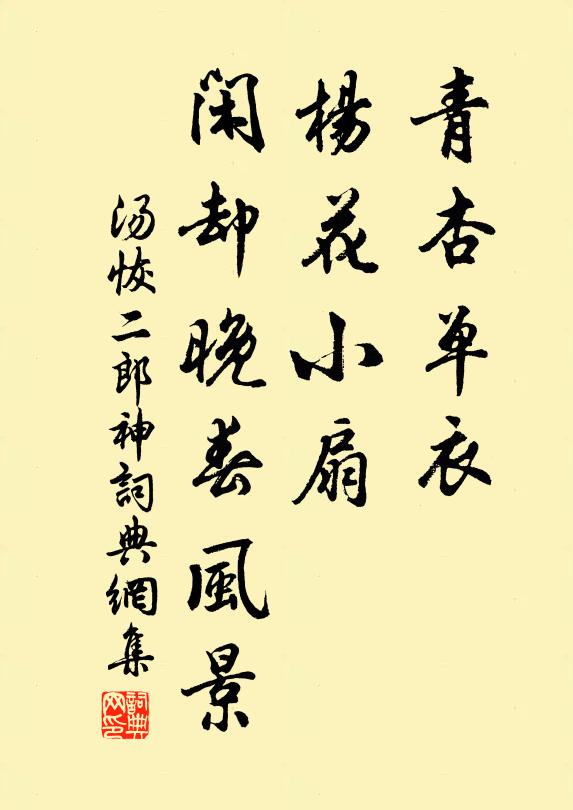 青杏单衣
楊花小扇
闲却晚春風景
汤恢二郎神詞典網集
詞典网印